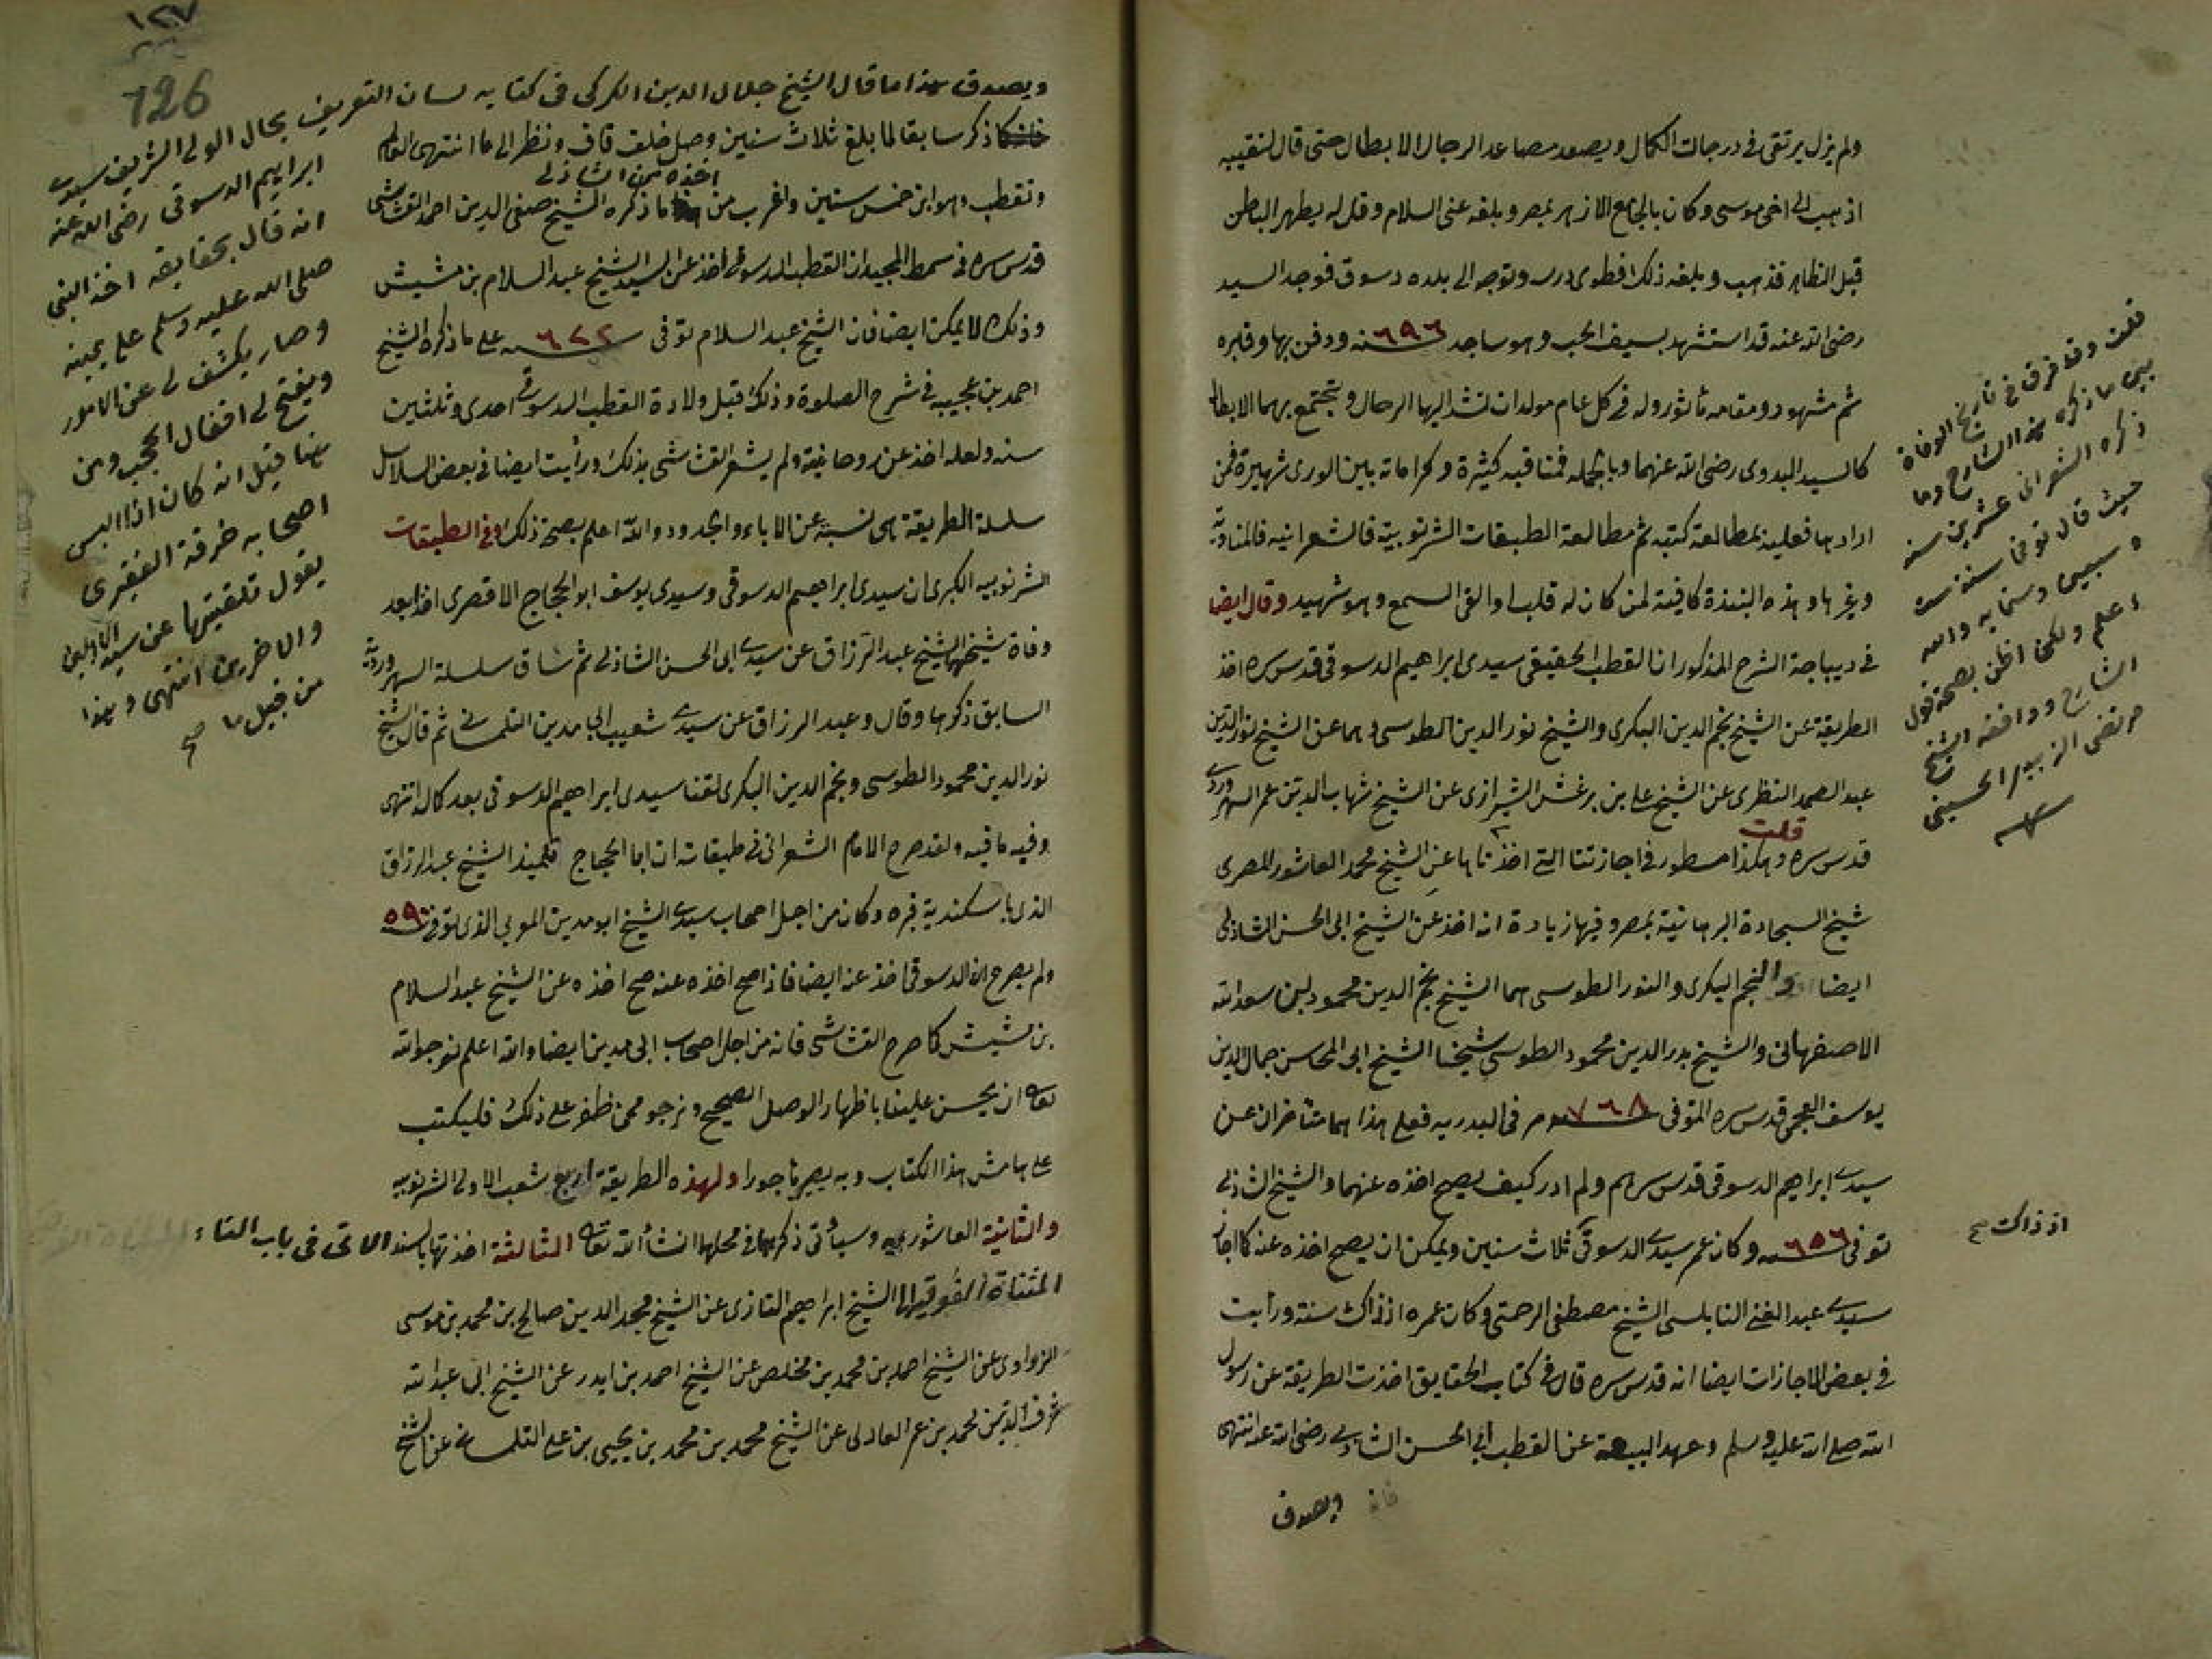 ولم يزل يرتقى فى درجات الكمال ويصعد مصاعد الرجال الابطال حتى قال لنقيبه
اذهب الى اخى موسى وكان بالجامع الازهر بمصر وبلغه عنى السلام وقل له يطهر الباطن
قبل الظاهر فذهب وبلغه ذلك فطوى درسه وتوجه الى بلده دسوق فوجد السيد
رضى الله عنه قد استشهد بسيف الحب وهو ساجد ٦٩٦ سنه ودفن بها وقبره
ثم مشهود ومقامه مأثور وله فى كل عام مولدات تشد اليها الرحال وتجتمع بهما الابطال
كالسيد البدوى رضى الله عنهما وبالجمله فمناقبه كثيرة وكراماته بين الورى شهيرة فمن
ارادها فعليه بمطالعة كتبه ثم مطالعة الطبقات الشرنوبية فالشعرانيه فالمناوية
وغيرها وهذه النبذة كافية لمن كان له قلب او القى السمع وهو شهيد وقال ايضا
فى ديباجة الشرح المذكور ان القطب الحقيقى سيدى ابراهيم الدسوقى قدس سره اخذ
الطريقة عن الشيخ نجم الدين البكرى والشيخ نور الدين الطوسى وهما عن الشيخ نور الدين
عبد الصمد النظرى عن الشيخ على بن برغش الشيرازى عن الشيخ شهاب الدين عمر السهروردى
قلت
قدس سره وهكذا مسطور فى اجازتنا التى اخذناها عن الشيخ محمد العاشور المصرى
شيخ السجادة البرهانية بمصر وفيها زيادة انه اخذ عن الشيخ ابى الحسن الشاذلى
ايضا والنجم البكرى والنور الطوسى هما الشيخ نجم الدين محمود بن سعد الله
الاصفهانى والشيخ بدر الدين محمود الطوسى شيخنا الشيخ ابى المحاسن جمال الدين
يوسف العجمى قدس سره المتوفى ٧٦٨ سنه فى البدريه فعلى هذا هما متأخران عن
سيدى ابراهيم الدسوقى قدس سرهم ولم ادر كيف يصح اخذه عنهما والشيخ الشاذلى
توفى ٦٥٦ سنه وكان عمر سيدى الدسوقى ثلاث سنين ويمكن ان يصح اخذه عنه كما اجاز
سيدى عبد الغنى النابلسى الشيخ مصطفى الرحمتى وكان عمره اذ ذاك سنة ورأيت
فى بعض الاجازات ايضا انه قدس سره قال فى كتاب الحقايق اخذت الطريقة عن رسول
الله صلى الله عليه وسلم وعهد البيعة عن القطب ابى الحسن الشاذلى رضى الله عنه انتهى
ويصدق
قلت وقد فرق فى تاريخ الوفاة
بين ما ذكره هذا الشارح وما
ذكره الشعرانى عشرين سنه
حيث قال توفى سنة ست
وسبعين وستمايه والله
اعلم ولكن اظن بصحة قول
الشارح ووافقه الشيخ
مرتضى الزبيدى الحسينى
اذ ذاك صح
١٢٧
126
ويصدق هذا ما قال الشيخ جلال الدين الكركى فى كتابه لسان التعريف بحال الولى الشريف سيدى
ابراهيم الدسوقى رضى الله عنه
انه قال بحقايقه اخذ النبى
صلى الله عليه وسلم على يمينه
وصار يكشف لى عن الامور
ويفتح لى اقفال الحجب ومن
هنا قيل انه كان اذا البس
اصحابه خرقة الفقرى
يقول تلقيتها عن سيد الاولين
والاخرين انتهى وهذا
من قبيل ما صح
كما ذكر سابقا لما بلغ ثلاث سنين وصل خلف قاف ونظر الى ما انتهى العالم
اخذه عن الشاذلى
وتقطب وهو ابن خمس سنين واغرب من هذا ما ذكره الشيخ صفى الدين احمد القشاشى
قدس سره فى سمط المجيد ان القطب الدسوقى اخذ عن السيد الشيخ عبد السلام بن مشيش
وذلك لا يمكن ايضا فان الشيخ عبد السلام توفى ٦٢٢ سنه على ما ذكره الشيخ
احمد بن عجيبه فى شرح الصلوة وذلك قبل ولادة القطب الدسوقى احدى وثلثين
سنه ولعله اخذ عن روحانيته ولم يشعر القشاشى بذلك ورأيت ايضا فى بعض السلاسل
سلسلة الطريقة هى نسبة عن الاباء والجدود والله اعلم بصحة ذلك وفى الطبقات
الشرنوبيه الكبرى ان سيدى ابراهيم الدسوقى وسيدى يوسف ابو الحجاج الاقصرى اخذا بعد
وفاة شيخهما الشيخ عبد الرزاق عن سيدى ابى الحسن الشاذلى ثم ساق سلسلة السهروردية
السابق ذكرها وقال وعبد الرزاق عن سيدى شعيب ابى مدين التلمسانى ثم قال الشيخ
نور الدين محمود الطوسى ونجم الدين البكرى لقنا سيدى ابراهيم الدسوقى بعد كماله انتهى
وفيه ما فيه ولقد صرح الامام الشعرانى فى طبقاته ان ابا الحجاج تلميذ الشيخ عبد الرزاق
الذى باسكندرية قبره وكان من اجل اصحاب سيدى الشيخ ابو مدين المغربى الذى توفى ٥٩٠
ولم يصرح ان الدسوقى اخذ عنه ايضا فاذا صح اخذه عنه صح اخذه عن الشيخ عبد السلام
بن مشيش كما صرح القشاشى فانه من اجل اصحاب ابى مدين ايضا والله اعلم نوجو الله
تعالى ان يحسن علينا باظهار الوصل الصحيح ونرجو ممن ظفر على ذلك فليكتب
على هامش هذا الكتاب وبه يصير مأجورا ولهذه الطريقة اربع شعب الاولى الشرنوبيه
والثانية العاشوريه وسيأتى ذكرهما فى محلها انشأ الله تعالى الثالثة اخذتها بالسند الاتى فى باب التاء
المثناة الفوقية الى الشيخ ابراهيم التازى عن الشيخ مجد الدين صالح بن محمد بن موسى
الزواوى عن الشيخ احمد بن محمد بن مخلص عن الشيخ احمد بن ايدر عن الشيخ ابى عبد الله
شرف الدين محمد بن عمر العادلى عن الشيخ محمد بن محمد بن يحيى بن على التلمسانى عن الشيخ